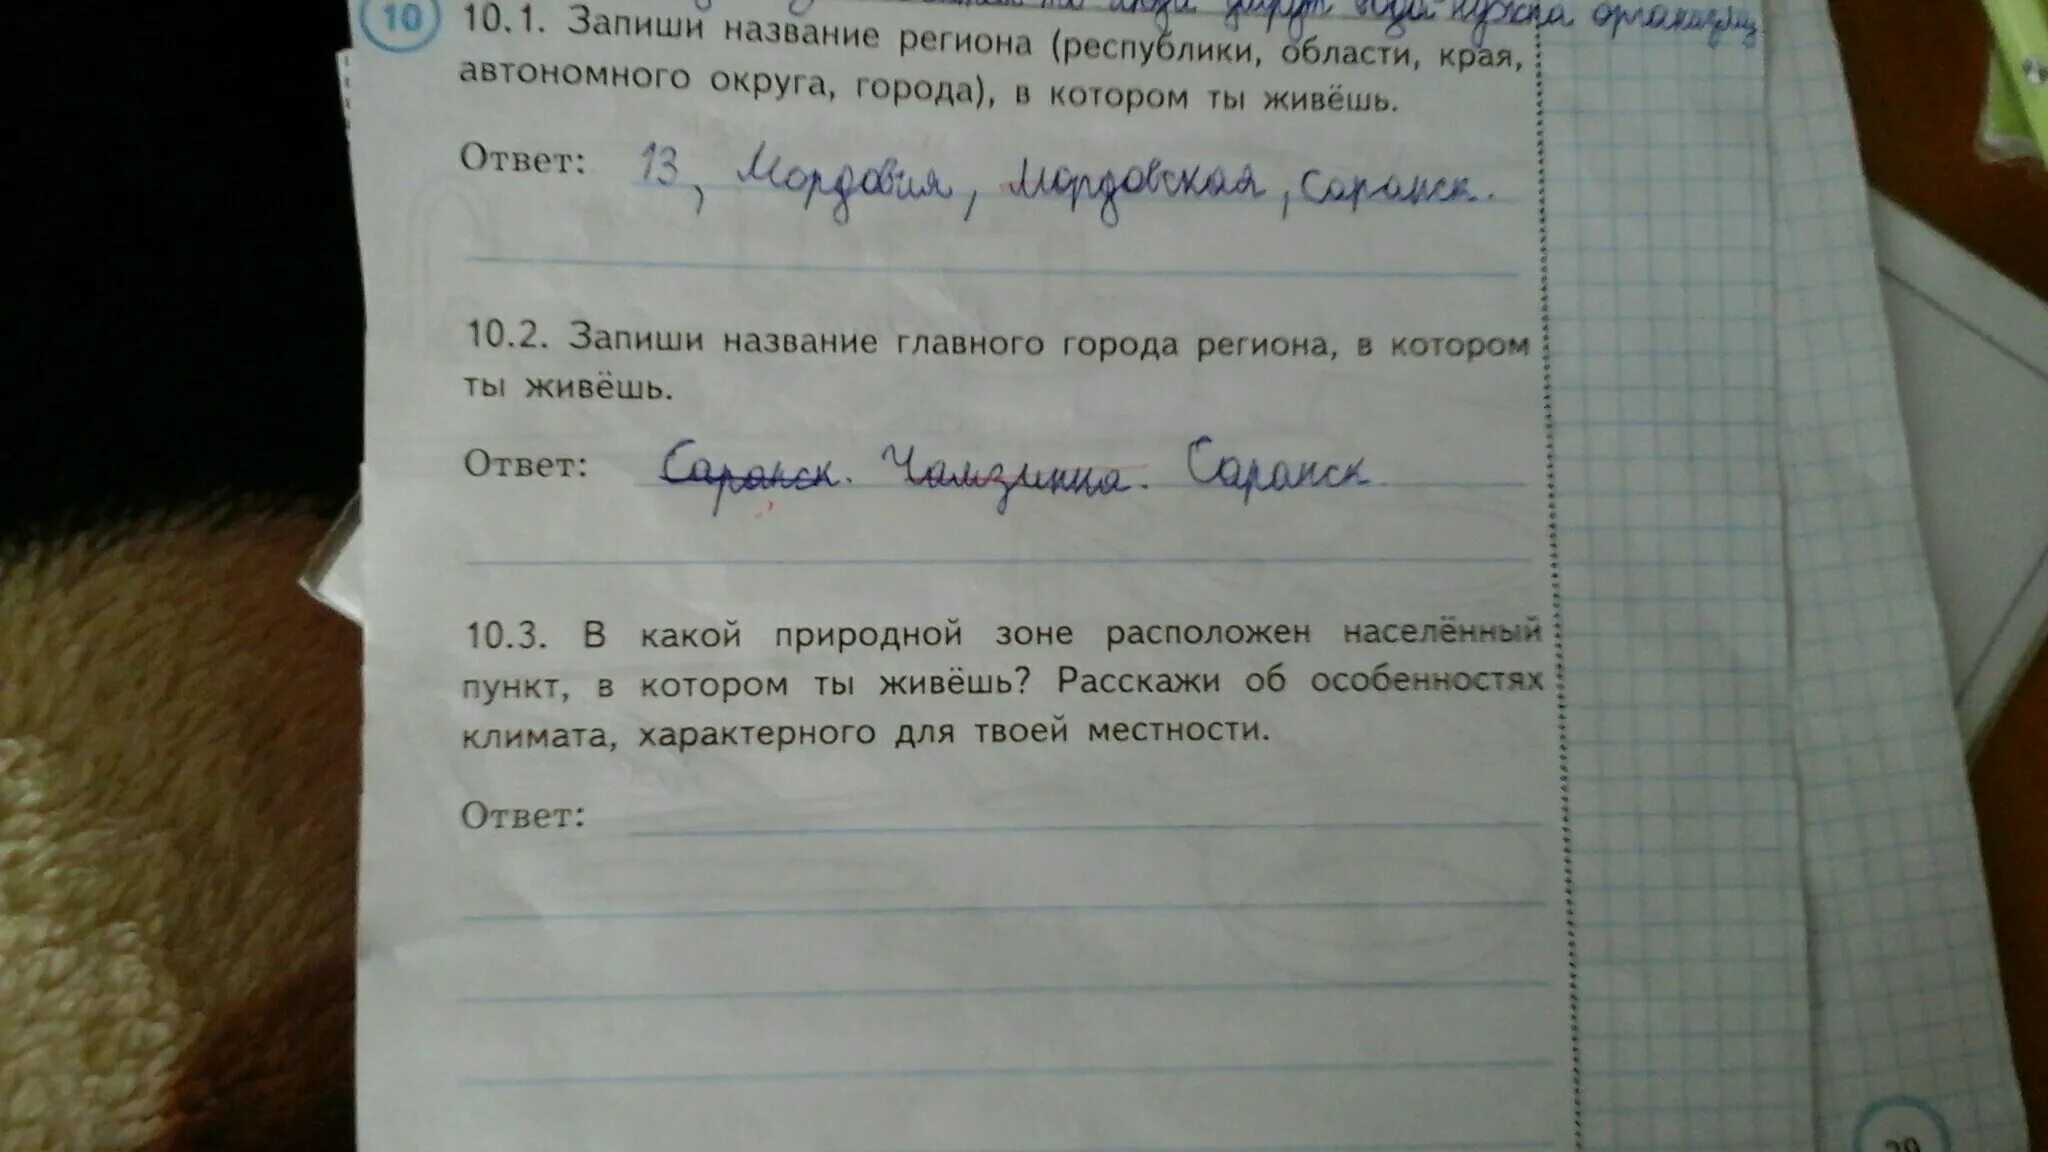 люди умрут вода нужна
10 10.1. Запиши название региона (республики, области, края,
автономного округа, города), в котором ты живёшь.
Ответ: 13, Мордовия, Мордовская, Саранск.
10.2. Запиши название главного города региона, в котором
ты живёшь.
Ответ: Саранск. Чамзинка. Саранск.
10.3. В какой природной зоне расположен населённый
пункт, в котором ты живёшь? Расскажи об особенностях
климата, характерного для твоей местности.
Ответ: